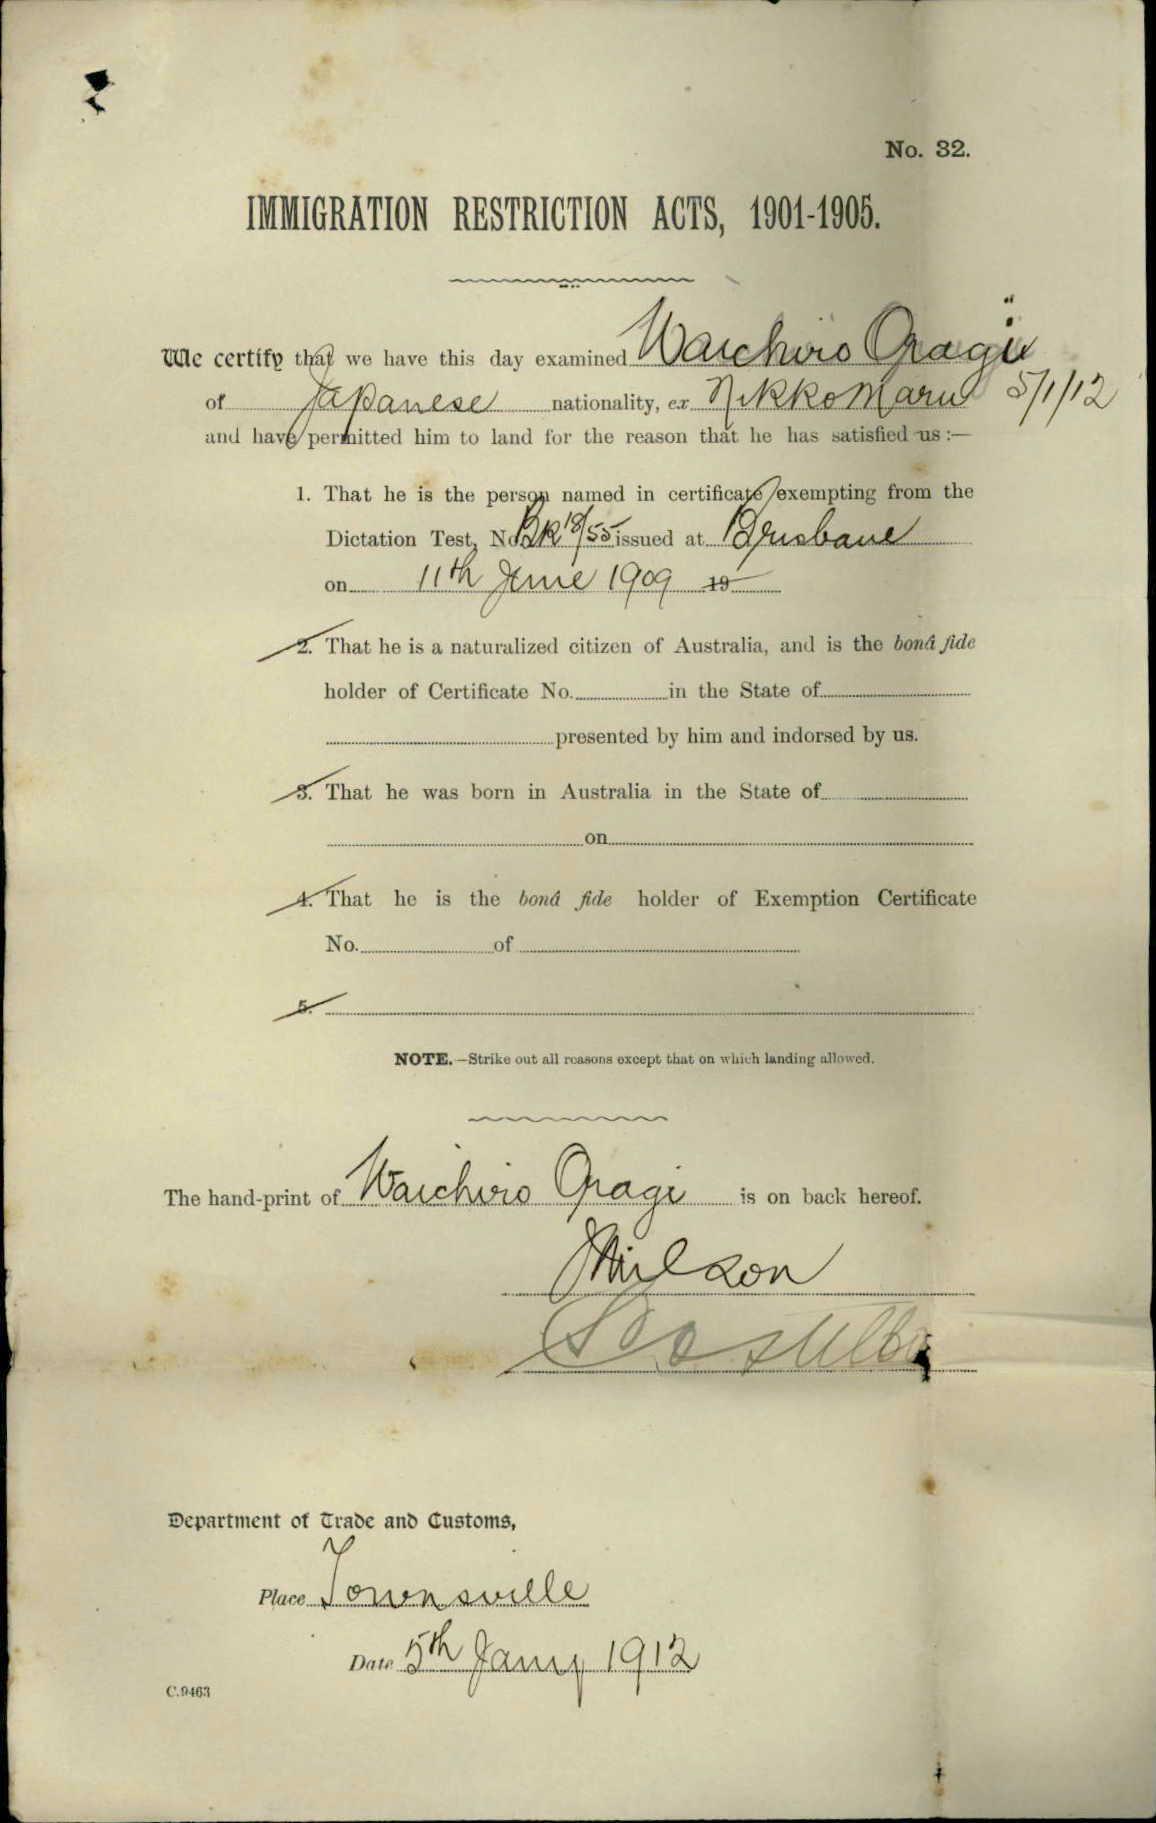 No. 32.
IMMIGRATION RESTRICTION ACTS, 1901-1905.
We certify that we have this day examined Waichiro Oragi
of Japanese nationality, ex Nikko Maru 5/1/12
and have permitted him to land for the reason that he has satisfied us :—
1. That he is the person named in certificate exempting from the
Dictation Test, No. Bk 18/55 issued at Brisbane
on 11th June 1909 19
2. That he is a naturalized citizen of Australia, and is the bonâ fide
holder of Certificate No. in the State of
presented by him and indorsed by us.
3. That he was born in Australia in the State of
on
4. That he is the bonâ fide holder of Exemption Certificate
No. of
5.
NOTE.—Strike out all reasons except that on which landing allowed.
The hand-print of Waichiro Oragi is on back hereof.
Department of Trade and Customs,
Place Townsville
Date 5th Jany 1912
C.9463